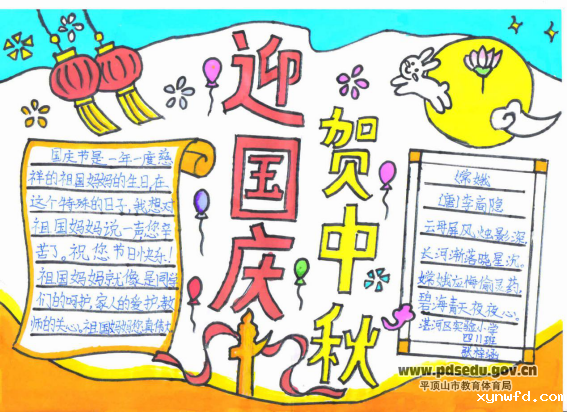 迎国庆
贺中秋
国庆节是一年一度慈
祥的祖国妈妈的生日,在
这个特殊的日子,我想对
祖国妈妈说一声您辛
苦了。祝您节日快乐!
祖国妈妈就像是同学
们的呵护,家人的爱护,教
师的关心。祖国妈妈您真伟大
嫦娥
(唐)李商隐
云母屏风烛影深
长河渐落晓星沉。
嫦娥应悔偷灵药,
碧海青天夜夜心。
湛河区实验小学
四川班
www.pdsedu.gov.cn
平顶山市教育体育局
xynwfd.com